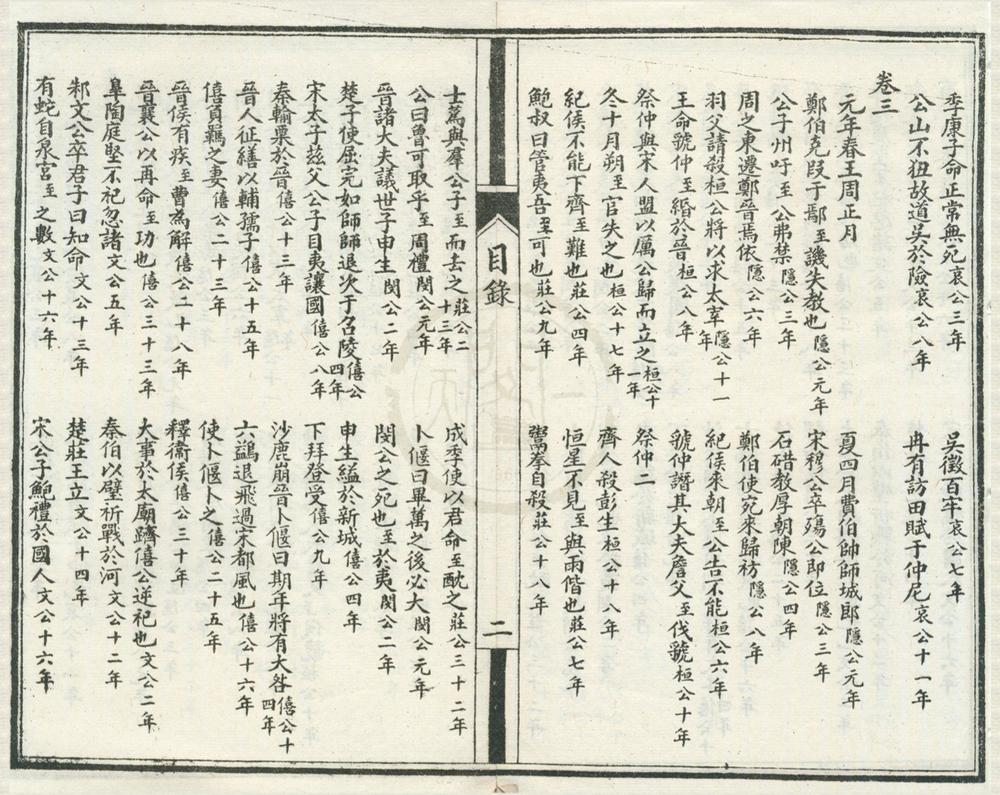 季康子命正常無死哀公三年　吳徵百牢哀公七年
公山不狃故道吳於險哀公八年　冉有訪田賦于仲尼哀公十一年
卷三
元年春王周正月　夏四月費伯帥師城郎隱公元年
鄭伯克段于鄢至譏失教也隱公元年　宋穆公卒殤公即位隱公三年
公子州吁至公弗禁隱公三年　石碏教厚朝陳隱公四年
周之東遷鄭晉焉依隱公六年　鄭伯使宛來歸祊隱公八年
羽父請殺桓公將以求太宰隱公十一年　紀侯來朝至公告不能桓公六年
王命虢仲至緡於晉桓公八年　虢仲譖其大夫詹父至伐虢桓公十年
祭仲與宋人盟以厲公歸而立之桓公十一年　祭仲二
冬十月朔至官失之也桓公十七年　齊人殺彭生桓公十八年
紀侯不能下齊至難也莊公四年　恒星不見至與雨偕也莊公七年
鮑叔曰管夷吾至可也莊公九年　鬻拳自殺莊公十八年
目錄
二
士蒍與羣公子至而去之莊公二十三年　成季使以君命至酖之莊公三十二年
公曰魯可取乎至周禮閔公元年　卜偃曰畢萬之後必大閔公元年
晉諸大夫議世子申生閔公二年　閔公之死也至於夷閔公二年
楚子使屈完如師師退次于召陵僖公四年　申生縊於新城僖公四年
宋太子茲父公子目夷讓國僖公八年　下拜登受僖公九年
秦輸粟於晉僖公十三年　沙鹿崩晉卜偃曰期年將有大咎僖公十四年
晉人征繕以輔孺子僖公十五年　六鷁退飛過宋都風也僖公十六年
僖負羈之妻僖公二十三年　使卜偃卜之僖公二十五年
晉侯有疾至曹為解僖公二十八年　釋衞侯僖公三十年
晉襄公以再命至功也僖公三十三年　大事於太廟躋僖公逆祀也文公二年
臯陶庭堅不祀忽諸文公五年　秦伯以璧祈戰於河文公十二年
邾文公卒君子曰知命文公十三年　楚莊王立文公十四年
有蛇自泉宮至之數文公十六年　宋公子鮑禮於國人文公十六年